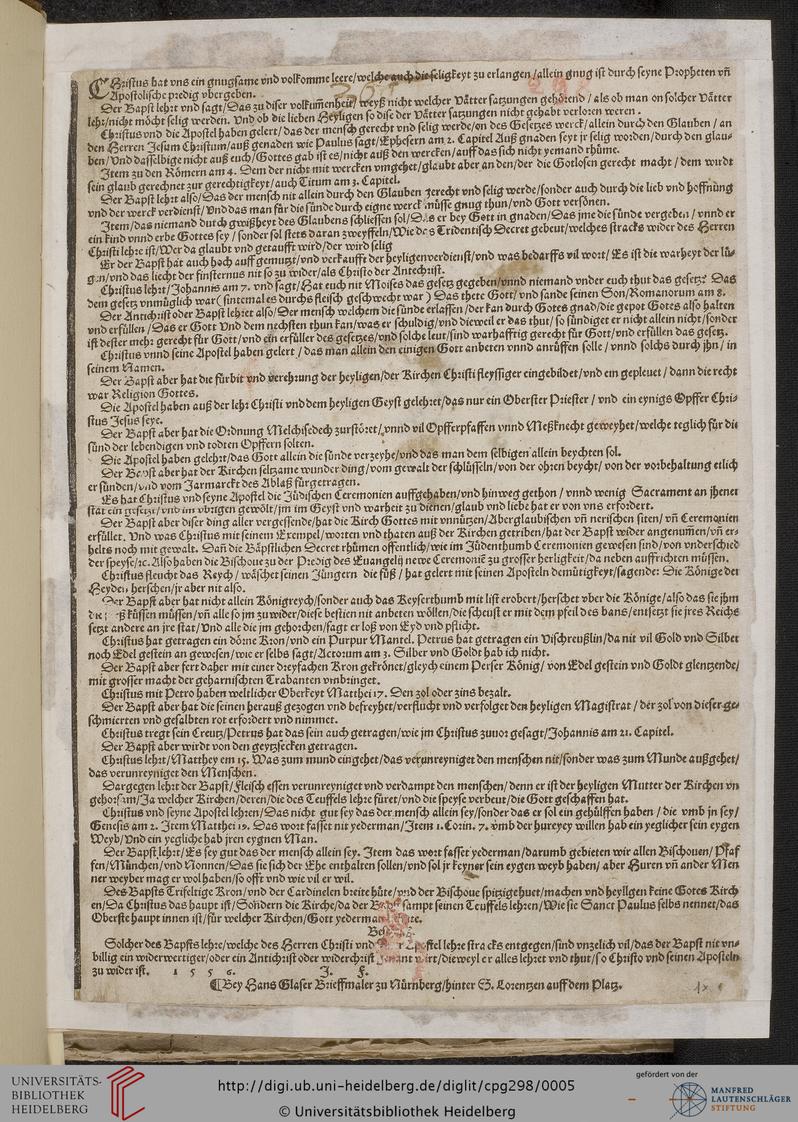 CHristus hat vns ein gnugsame vnd volkomme leere/welche auch die seligkeyt zu erlangen/allein gnug ist durch seyne Propheten vñ
Apostolische predig vbergeben.
Der Bapst lehrt vnd sagt/Das zu diser volkummenheit/weyß nicht welcher Vätter satzungen gehörend/als ob man on solcher Vätter
lehr/nicht möcht selig werden. Vnd ob die lieben Heyligen so dise der Vätter satzungen nicht gehabt verloren weren.
Christus vnd die Apostel haben gelert/das der mensch gerecht vnd selig werde/on des Gesetzes werck/allein durch den Glauben/an
den Herren Jesum Christum/auß genaden wie Paulus sagt/Ephesern am 2. Capitel Auß gnaden seyt jr selig worden/durch den glau-
ben/Vnd dasselbige nicht auß euch/Gottes gab ist es/nicht auß den wercken/auff das sich nicht yemand rhüme.
Item zu den Römern am 4. Dem der nicht mit wercken vmgehet/glaubt aber an den/der die Gotlosen gerecht macht/dem wirdt
sein glaub gerechnet zur gerechtigkeyt/auch Titum am 3. Capitel.
Der Bapst lehrt also/Das der mensch nit allein durch den Glauben gerecht vnd selig werde/sonder auch durch die lieb vnd hoffnung
vnd der werck verdienst/Vnd das man für die sünde durch eigne werck müsse gnug thun/vnd Gott versönen.
Item/das niemand durch gwißheyt des Glaubens schliessen sol/Das er bey Gott in gnaden/Das jme die sünde vergeben/vnnd er
ein kind vnnd erbe Gottes sey/sonder sol stets daran zweyffeln/Wie das Tridentisch Decret gebeut/welches stracks wider des Herren
Christi lehre ist/Wer da glaubt vnd getaufft wird/der wird selig
Er der Bapst hat auch hoch auff gemutzt/vnd verkaufft der heyligen verdienst/vnd was bedarffs vil wort/Es ist die warheyt der lü-
gen/vnd das liecht der finsternus nit so zu wider/als Christo der Antechrist.
Christus lehrt/Johannis am 7. vnd sagt/Hat euch nit Moises das gesetz gegeben/vnnd niemand vnder euch thut das gesetz? Das
dem gesetz vnmüglich war (sintemal es durchs fleisch geschwecht war) Das thete Gott/vnd sande seinen Son/Romanorum am 8.
Der Antichrist oder Bapst lehret also/Der mensch welchem die sünde erlassen/der kan durch Gotes gnad/die gepot Gotes also halten
vnd erfüllen/Das er Gott Vnd dem nechsten thun kan/was er schuldig/vnd dieweil er das thut/so sündiget er nicht allein nicht/sonder
ist dester mehr gerecht für Gott/vnd ein erfüller des gesetzes/vnd solche leut/sind warhafftig gerecht für Gott/vnd erfüllen das gesetz.
Christus vnnd seine Apostel haben gelert/das man allein den einigen Gott anbeten vnnd anrüffen solle/vnnd solchs durch jhn/in
seinem Namen.
Der Bapst aber hat die fürbit vnd verehrung der heyligen/der Kirchen Christi fleyssiger eingebildet/vnd ein gepleuet/dann die recht
war Religion Gottes.
Die Apostel haben auß der lehr Christi vnd dem heyligen Geyst gelehret/das nur ein Oberster Priester/vnd ein eynigs Opffer Chri-
stus Jesus seye.
Der Bapst aber hat die Ordnung Melchisedech zurstöret/vnnd vil Opfferpfaffen vnnd Meßknecht geweyhet/welche teglich für die
sünd der lebendigen vnd todten Opffern solten.
Die Apostel haben gelehrt/das Gott allein die sünde verzeyhe/vnd das man dem selbigen allein beychten sol.
Der Bapst aber hat der Kirchen seltzame wunder ding/vom gewalt der schlüsseln/von der ohren beycht/von der vorbehaltung etlich
er sünden/vnd vom Jarmarckt des Ablaß fürgetragen.
Es hat Christus vnd seyne Apostel die Jüdischen Ceremonien auffgehaben/vnd hinweg gethon/vnnd wenig Sacrament an jhener
stat ein gesetzt/vnd im vbrigen gewölt/jm im Geyst vnd warheit zu dienen/glaub vnd liebe hat er von vns erfordert.
Der Bapst aber diser ding aller vergessende/hat die Kirch Gottes mit vnnützen/Aberglaubischen vñ nerischen siten/vñ Ceremonien
erfüllet. Vnd was Christus mit seinem Exempel/worten vnd thaten auß der Kirchen getriben/hat der Bapst wider angenumen/vñ er-
helts noch mit gewalt. Dañ die Bäpstlichen Decret rhümen offentlich/wie im Jüdenthumb Ceremonien gewesen sind/von vnderschied
der speyse/rc. Also haben die Bischoue zu der Predig des Euangelij newe Ceremoniē zu grosser herligkeit/da neben auffrichten müssen.
Christus fleucht das Reych/wäschet seinen Jüngern die füß/hat gelert mit seinen Aposteln demütigkeyt/sagende: Die Könige der
Heyden herschen/jr aber nit also.
Der Bapst aber hat nicht allein Königreych/sonder auch das Keyserthumb mit list erobert/herschet vber die Könige/also das sie jhm
die füß küssen müssen/vñ alle so jm zuwider/diese bestien nit anbeten wöllen/die scheust er mit dem pfeil des bans/entsetzt sie jres Reichs
setzt andere an jre stat/Vnd alle die jm gehorchen/sagt er loß von Eyd vnd pflicht.
Christus hat getragen ein dörne Kron/vnd ein Purpur Mantel. Petrus hat getragen ein Vischreußlin/da nit vil Gold vnd Silber
noch Edel gestein an gewesen/wie er selbs sagt/Actorum am 3. Silber vnd Goldt hab ich nicht.
Der Bapst aber fert daher mit einer dreyfachen Kron gekrönet/gleych einem Perser König/von Edel gestein vnd Goldt glentzende/
mit grosser macht der geharnischten Trabanten vmbringet.
Christus mit Petro haben weltlicher Oberkeyt Matthei 17. Den zol oder zins bezalt.
Der Bapst aber hat die seinen herauß gezogen vnd befreyhet/verflucht vnd verfolget den heyligen Magistrat/der zol von dieser ge-
schmierten vnd gesalbten rot erfordert vnd nimmet.
Christus tregt sein Creutz/Petrus hat das sein auch getragen/wie jm Christus zuuor gesagt/Johannis am 21. Capitel.
Der Bapst aber wirdt von den geytzsecken getragen.
Christus lehrt/Matthey em 15. Was zum mund eingehet/das verunreyniget den menschen nit/sonder was zum Munde außgehet/
das verunreyniget den Menschen.
Dargegen lehrt der Bapst/Fleisch essen verunreyniget vnd verdampt den menschen/denn er ist der heyligen Mutter der Kirchen vn
gehorsam/Ja welcher Kirchen/deren/die des Teuffels lehre füret/vnd die speyse verbeut/die Gott geschaffen hat.
Christus vnd seyne Apostel lehren/Das nicht gut sey das der mensch allein sey/sonder das er sol ein gehülffen haben/die vmb jn sey/
Genesis am 2. Item Matthei 19. Das wort fasset nit yederman/Item 1. Corin. 7. vmb der hureyey willen hab ein yeglicher sein eygen
Weyb/Vnd ein yegliche hab jren eygnen Man.
Der Bapst lehrt/Es sey gut das der mensch allein sey. Item das wort fasset yederman/darumb gebieten wir allen Bischouen/Pfaf
fen/München/vnd Nonnen/Das sie sich der Ehe enthalten sollen/vnd sol jr keyner sein eygen weyb haben/aber Huren vñ ander Men
ner weyber mag er wol haben/so offt vnd wie vil er wil.
Des Bapsts Trifeltige Kron/vnd der Cardinelen breite hüte/vnd der Bischoue spitzige huet/machen vnd heyligen keine Gotes Kirch
en/Da Christus das haupt ist/Sondern die Kirche/da der Bapst sampt seinen Teuffels lehren/Wie sie Sanct Paulus selbs nennet/das
Oberste haupt innen ist/für welcher Kirchen/Gott yederman
Solcher des Bapsts lehre/welche des Herren Christi vnd Apostel lehre stracks entgegen/sind vnzelich vil/das der Bapst nit vn-
billig ein widerwertiger/oder ein Antichrist oder widerchrist genant wirt/dieweyl er alles lehret vnd thut/so Christo vnd seinen Aposteln
zu wider ist. 1 5 5 6. J. F.
Bey Hans Glaser Brieffmaler zu Nürnberg/hinter S. Lorentzen auff dem Platz.
UNIVERSITÄTS-
BIBLIOTHEK
HEIDELBERG
http://digi.ub.uni-heidelberg.de/diglit/cpg298/0005
© Universitätsbibliothek Heidelberg
gefördert von der
MANFRED
LAUTENSCHLÄGER
STIFTUNG